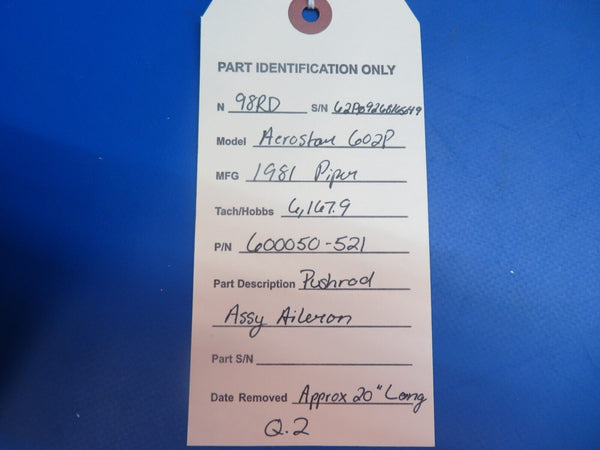 PART IDENTIFICATION ONLY
N 98RD S/N
Model Aerostar 602P
MFG 1981 Piper
Tach/Hobbs 6,167.9
P/N 600050-521
Part Description Pushrod
Assy Aileron
Part S/N
Date Removed Approx 20" Long
Q.2